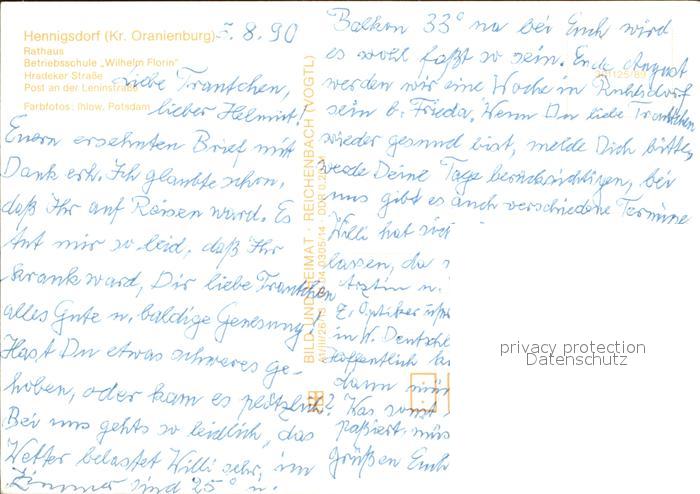 Hennigsdorf (Kr. Oranienburg)
5.8.90
Rathaus
Betriebsschule „Wilhelm Florin“
Hradeker Straße
Post an der Leninstraße
Farbfotos: Ihlow, Potsdam
Liebe Trautchen,
lieber Helmut!
Euern ersehnten Brief mit
Dank erh. Ich glaubte schon,
daß Ihr auf Reisen ward. Es
tut mir so leid, daß Ihr
krank ward, Dir liebe Trautchen
alles Gute u. baldige Genesung!
Hast Du etwas schweres ge-
hoben, oder kam es plötzlich?
Bei uns gehts so leidlich, das
Wetter belastet Willi sehr, im
Zimmer sind 25° u.
BILD UND HEIMAT · REICHENBACH (VOGTL)
Balkon 33° na bei Euch wird
es wohl faßt so sein. Ende August
werden wir eine Woche in Ruhlsdorf
sein b. Frieda. Wenn Du liebe Trautchen
wieder gesund bist, melde Dich bitte,
werde Deine Tage berücksichtigen, bei
uns gibt es auch verschiedene Termine
Willi hat
lassen, da
Ärztin u.
z. Optiker
in W. Deutschl
hoffentlich
dann
Was sonst
passiert
grüßen Euch
privacy protection
Datenschutz